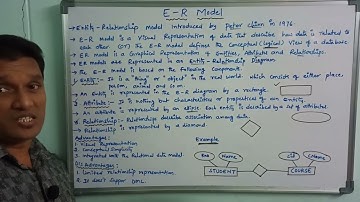 E-R Model
→ Entity-Relationship Model introduced by Peter Chen in 1976.
→ E-R model is a Visual Representation of data that describe how data is related to
each other (or) The E-R model defines the Conceptual (Logical) View of a database
→ ER model is a Graphical Representation of Entities, Attributes and Relationships.
→ ER models are Represented in an Entity-Relationship Diagram
→ The E-R model is based on the following components
1. Entity:- "thing" or "object" in the real world which consists of either place,
person, animal and so on.
→ An Entity is represented in the E-R diagram by a rectangle.
2. Attribute:- It is nothing but characteristics or properties of an Entity.
→ An attribute is represented by an ellipse. Each entity is described by a set of attributes.
3. Relationship:- Relationships describe association among data
→ Relationship is represented by a diamond.
Advantages:-
1. Visual Representation
2. Conceptual Simplicity
3. Integrated with the Relational data model
Dis Advantages:-
1. Limited relationship representation
2. It don't support DML.
Example
Rno
Name
cid
CName
STUDENT
COURSE